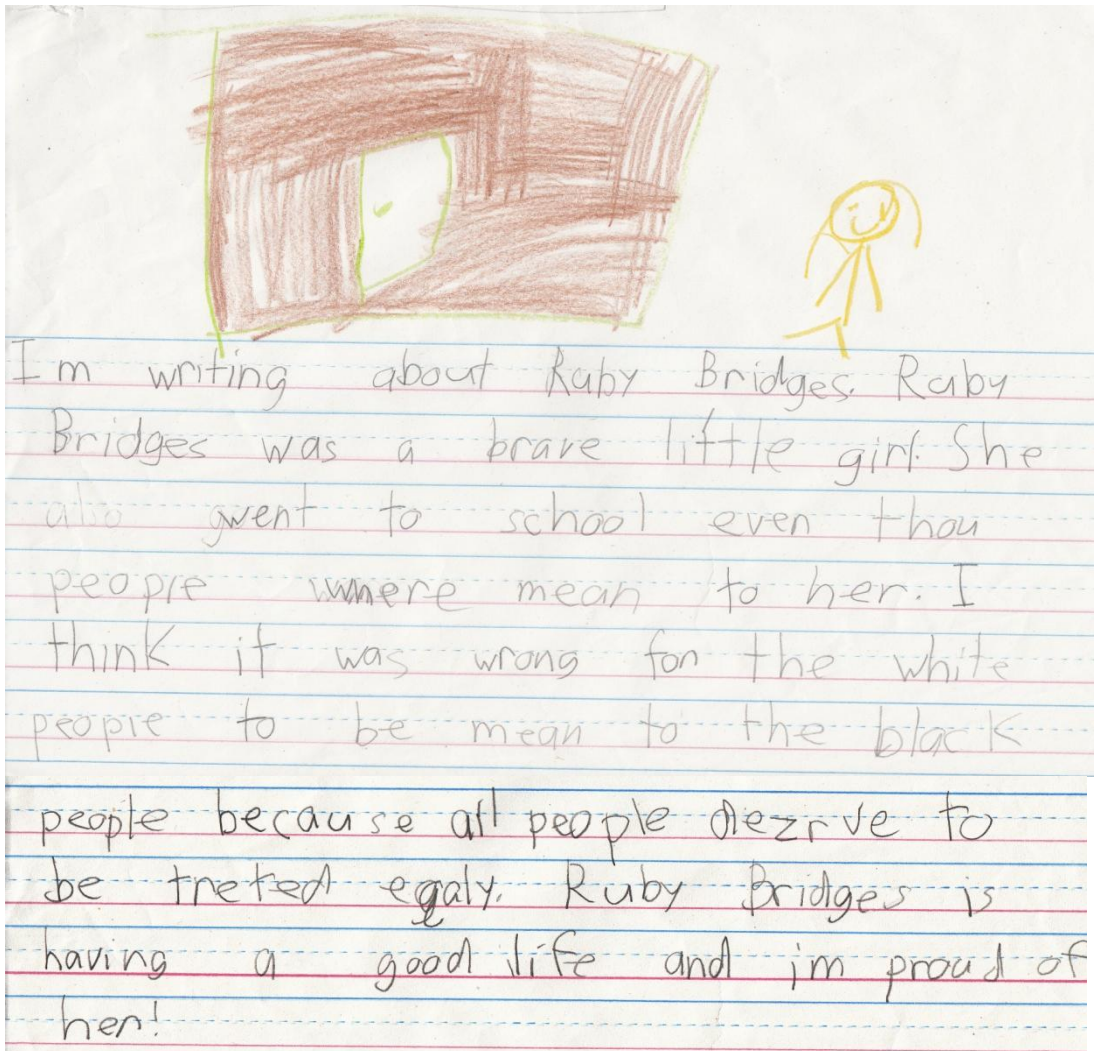 Im writing about Ruby Bridges. Ruby
Bridges was a brave little girl. She
also gwent to school even thou
people where mean to her. I
think it was wrong for the white
people to be mean to the black
people because all people dezrve to
be treted eqaly. Ruby Bridges is
having a good life and im proud of
her!